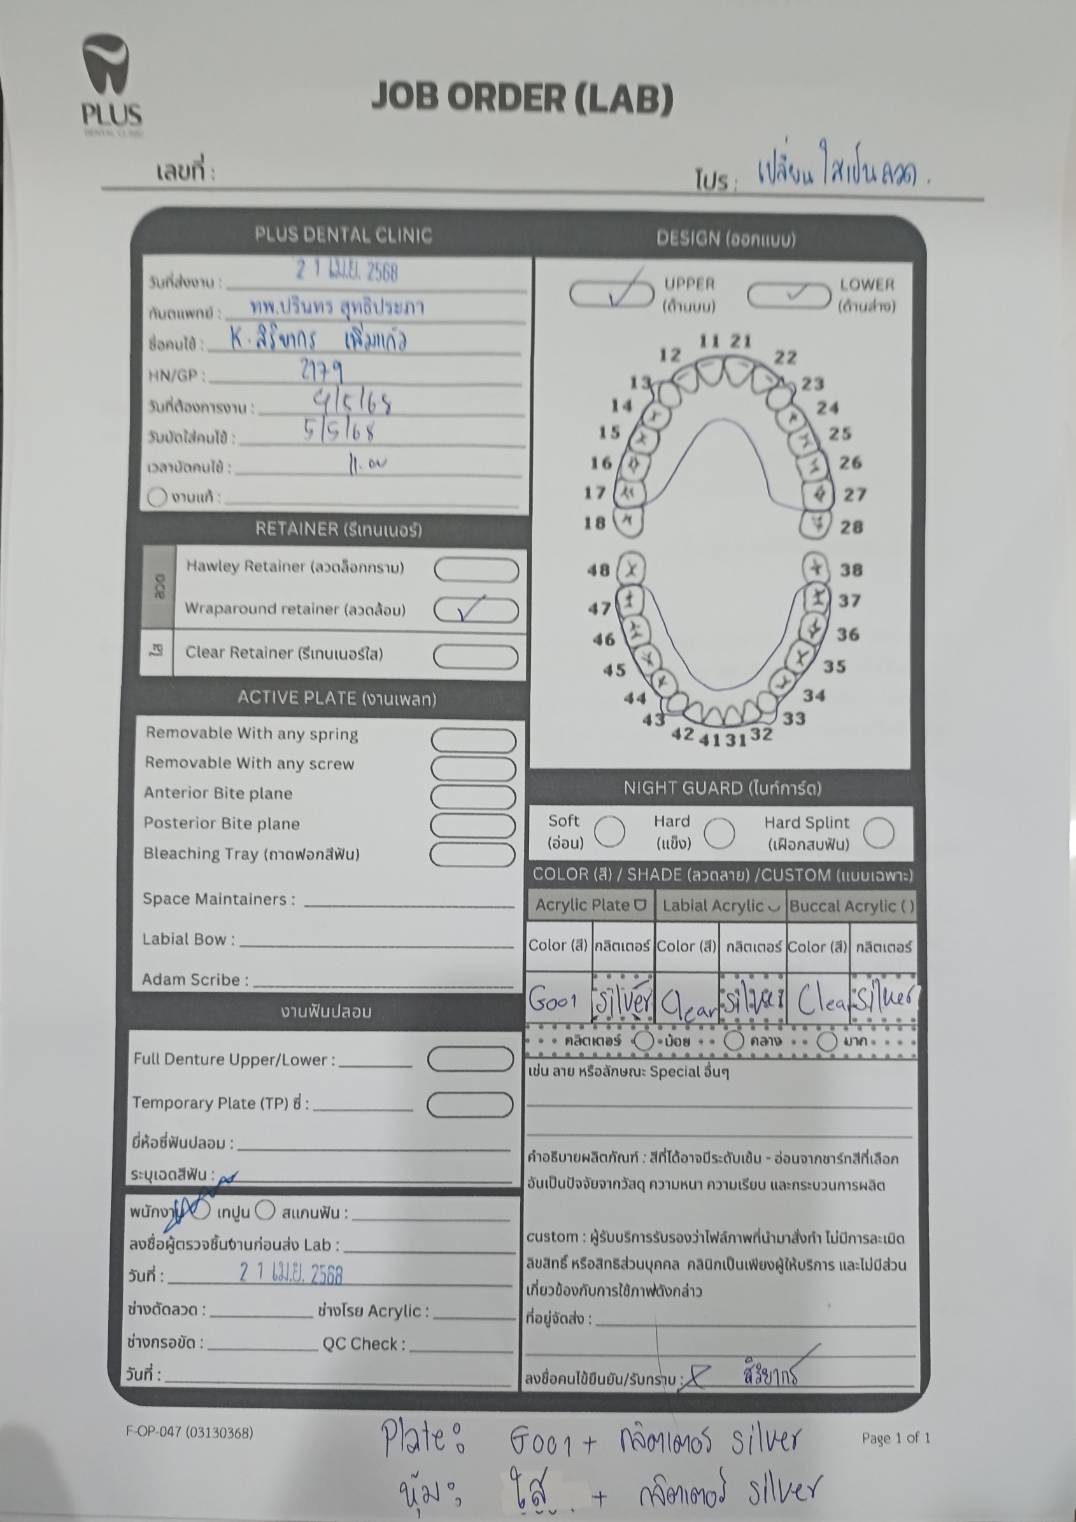 PLUS
DENTAL CLINIC
JOB ORDER (LAB)
เลขที่ :
โปร : เปลี่ยนใสเป็นลวด.
PLUS DENTAL CLINIC
วันที่ส่งงาน : 2 1 เม.ย. 2568
ทันตแพทย์ : ทพ.ปรินทร สุทธิประภา
ชื่อคนไข้ : K. สิริยากร เพิ่มแก้ว
HN/GP : 2179
วันที่ต้องการงาน : 4/5/68
วันนัดใส่คนไข้ : 5/5/68
เวลานัดคนไข้ : 11.00
งานแก้ :
RETAINER (รีเทนเนอร์)
ลวด
Hawley Retainer (ลวดล็อกกราม)
Wraparound retainer (ลวดล้อม)
ใส
Clear Retainer (รีเทนเนอร์ใส)
ACTIVE PLATE (งานเพลท)
Removable With any spring
Removable With any screw
Anterior Bite plane
Posterior Bite plane
Bleaching Tray (ถาดฟอกสีฟัน)
Space Maintainers :
Labial Bow :
Adam Scribe :
งานฟันปลอม
Full Denture Upper/Lower :
Temporary Plate (TP) ซี่ :
ยี่ห้อซี่ฟันปลอม :
ระบุเฉดสีฟัน :
พนักงาน เทปูน สแกนฟัน :
ลงชื่อผู้ตรวจชิ้นงานก่อนส่ง Lab :
วันที่ : 2 1 เม.ย. 2568
ช่างดัดลวด : ช่างโรย Acrylic :
ช่างกรอขัด : QC Check :
วันที่ :
DESIGN (ออกแบบ)
UPPER
(ด้านบน)
LOWER
(ด้านล่าง)
11 21
12 22
13 23
14 24
15 25
16 26
17 27
18 28
48 38
47 37
46 36
45 35
44 34
43 33
42 41 31 32
NIGHT GUARD (ไนท์การ์ด)
Soft
(อ่อน)
Hard
(แข็ง)
Hard Splint
(เฝือกสบฟัน)
COLOR (สี) / SHADE (ลวดลาย) /CUSTOM (แบบเฉพาะ)
Acrylic Plate Labial Acrylic Buccal Acrylic ( )
Color (สี) กลิตเตอร์ Color (สี) กลิตเตอร์ Color (สี) กลิตเตอร์
G001 silver Clear silver Clear silver
กลิตเตอร์ น้อย กลาง มาก
เช่น ลาย หรือลักษณะ Special อื่นๆ
คำอธิบายผลิตภัณฑ์ : สีที่ได้อาจมีระดับเข้ม - อ่อนจากชาร์ทสีที่เลือก
อันเป็นปัจจัยจากวัสดุ ความหนา ความเรียบ และกระบวนการผลิต
custom : ผู้รับบริการรับรองว่าไฟล์ภาพที่นำมาสั่งทำ ไม่มีการละเมิด
ลิขสิทธิ์ หรือสิทธิส่วนบุคคล คลินิกเป็นเพียงผู้ให้บริการ และไม่มีส่วน
เกี่ยวข้องกับการใช้ภาพดังกล่าว
ที่อยู่จัดส่ง :
ลงชื่อคนไข้ยืนยัน/รับทราบ : X สิริยากร
F-OP-047 (03130368)
Page 1 of 1
Plate : G001 + กลิตเตอร์ silver
หุ้ม : ใส + กลิตเตอร์ silver